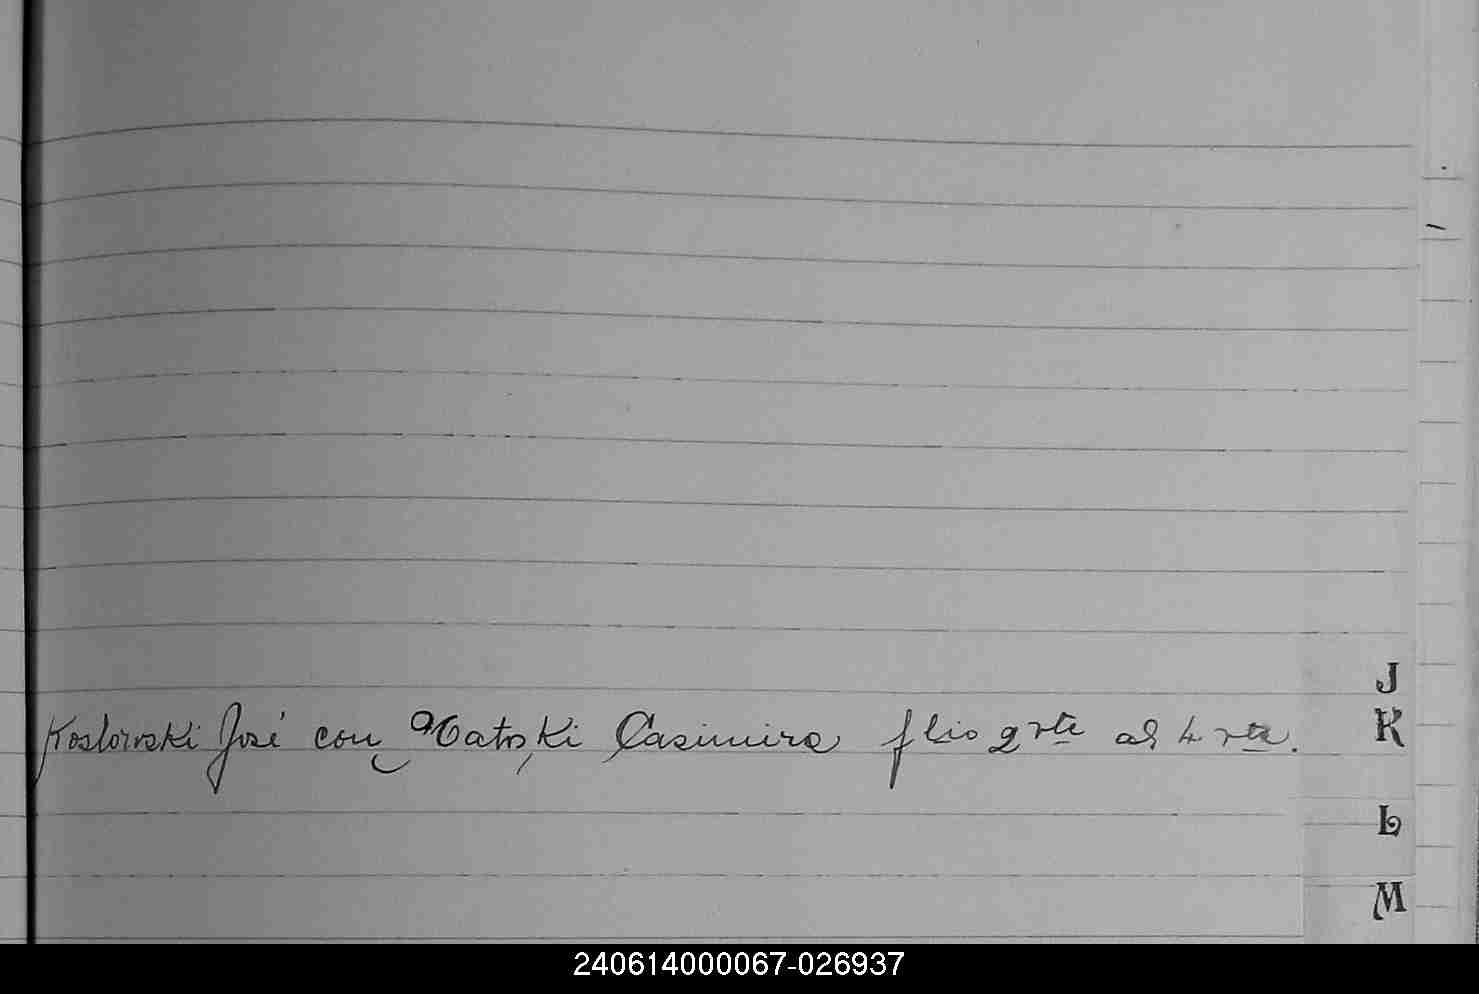 Koslowski José con Natoski Casimira flio 2 vta al 4 vta.
J
K
L
M
240614000067-026937